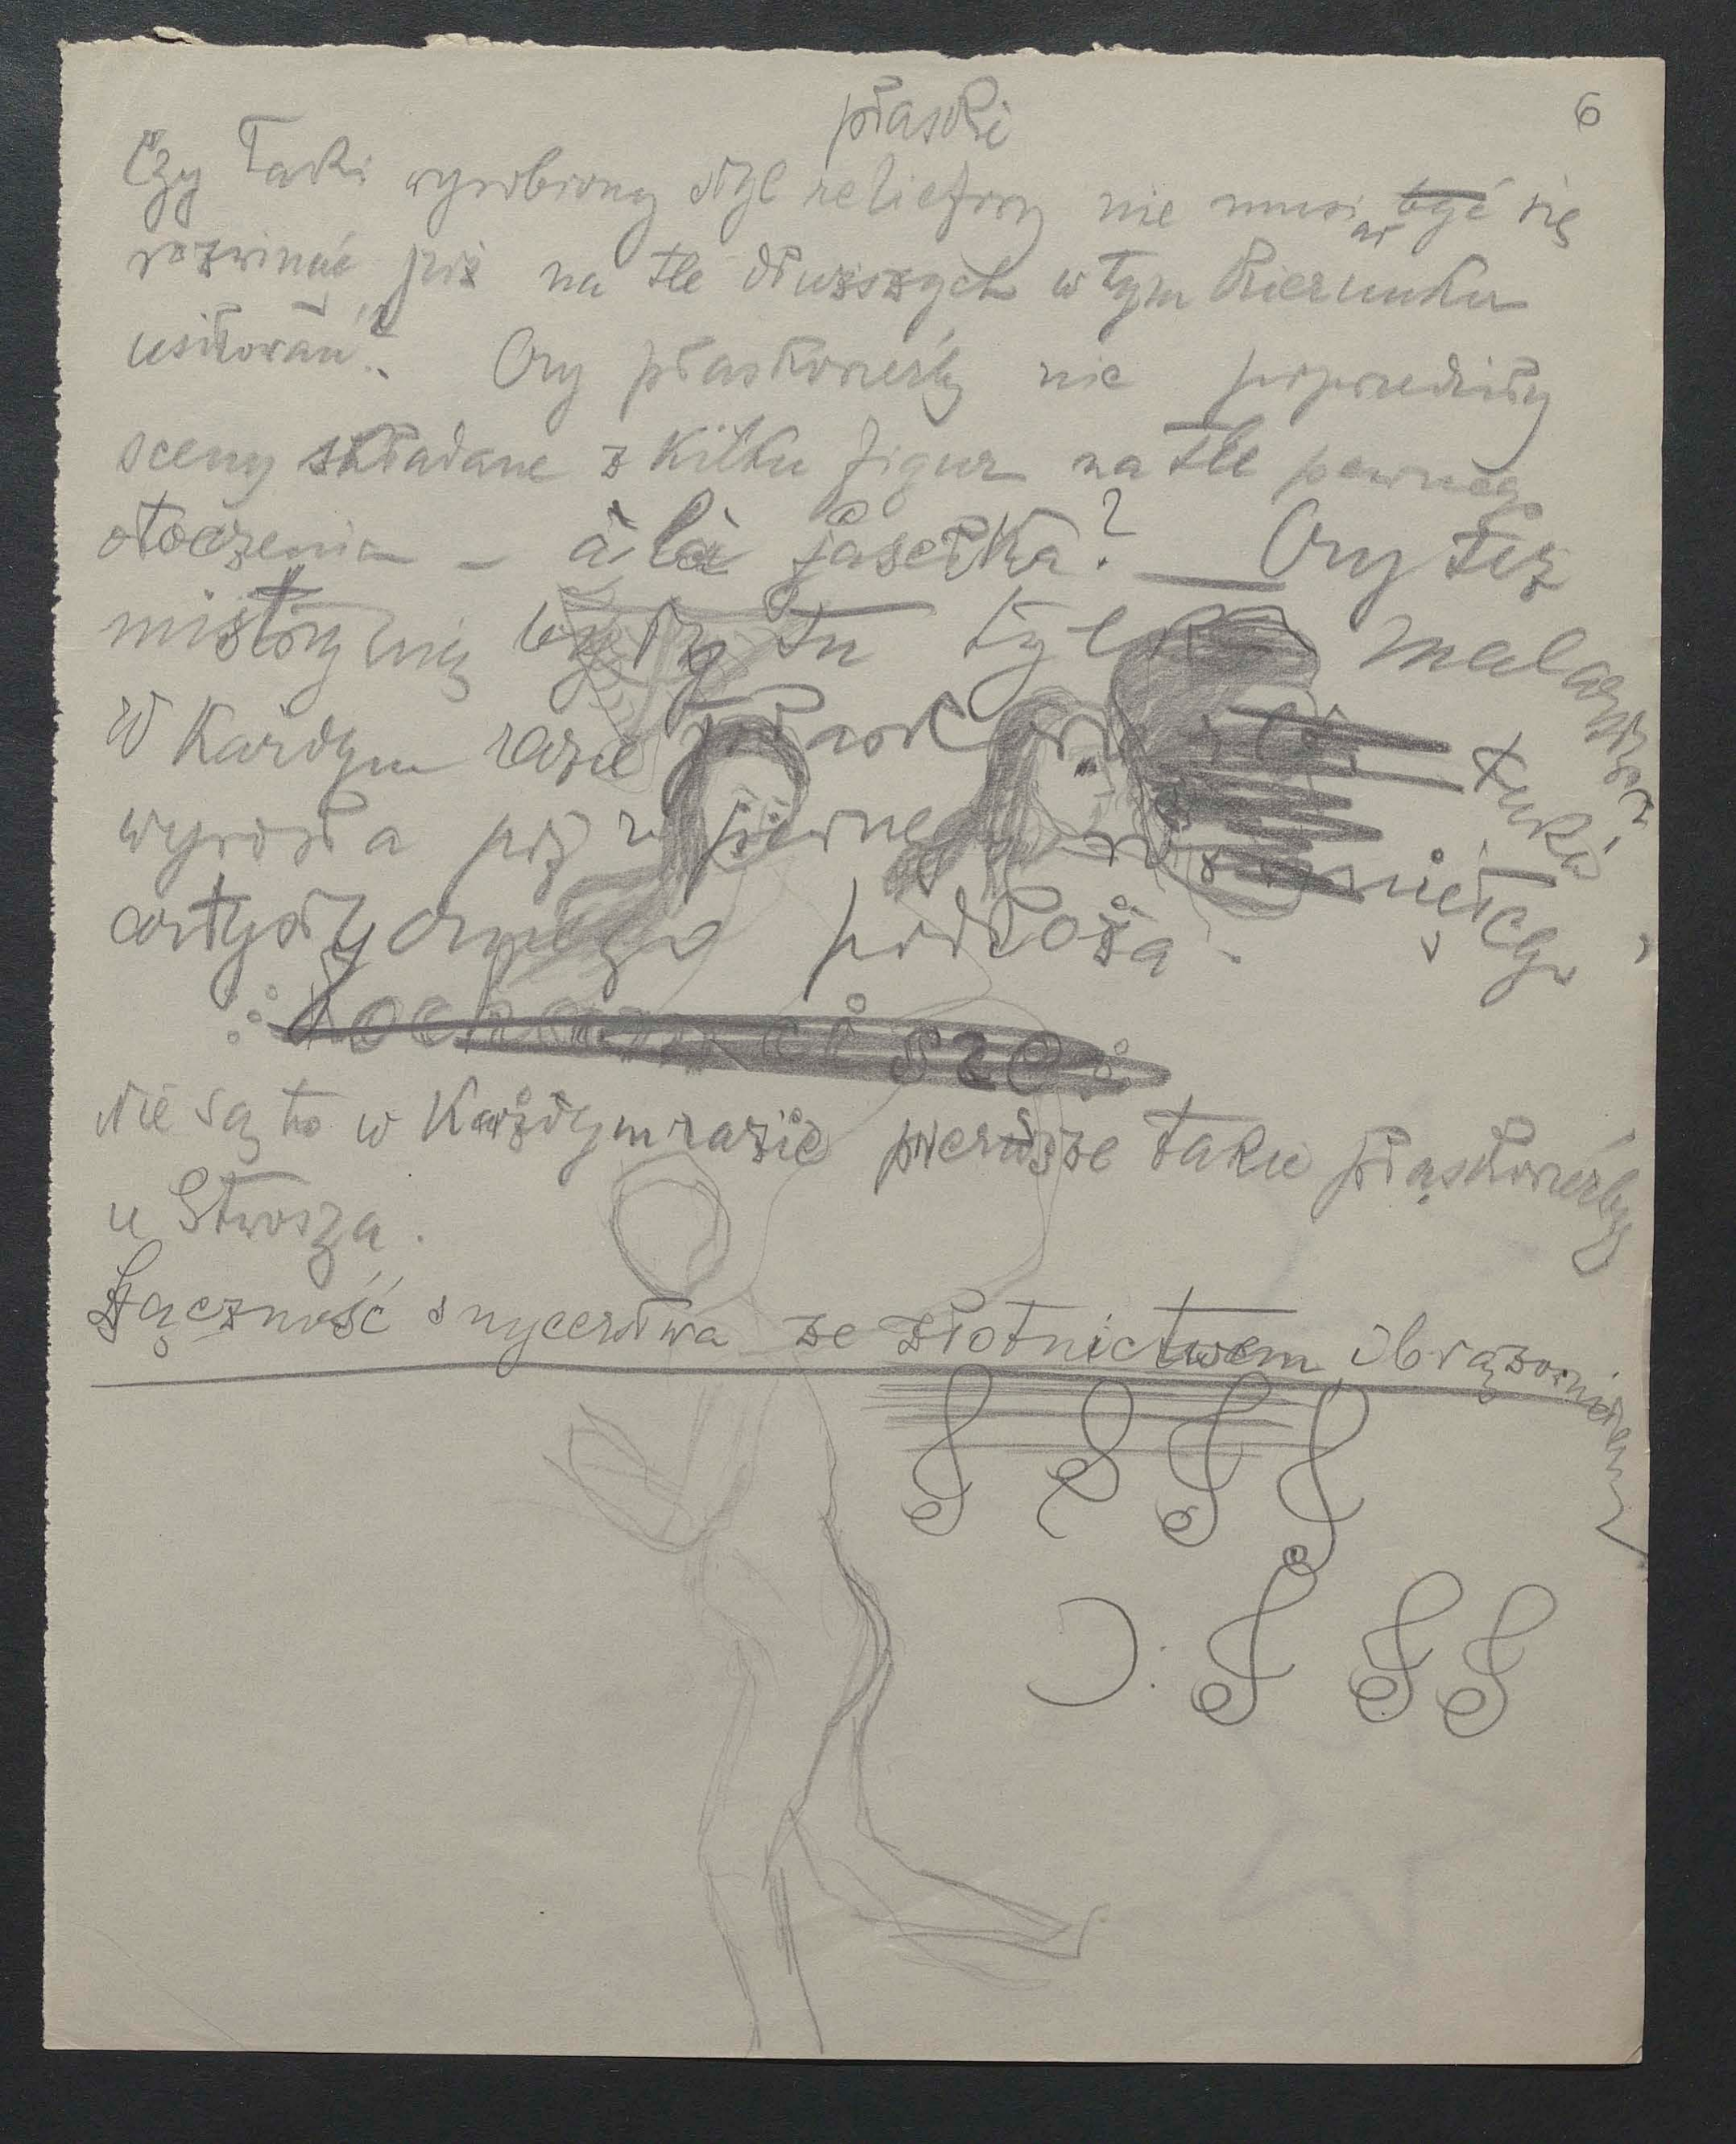 6
płaski
Czy taki wyrobiony styl reliefowy nie musiał być się
rozwinąć już na tle dłuższych w tym kierunku
usiłowań? Czy płaskorzeźby nie poprzedziły
sceny składane z kilku figur na tle pewnego
otoczenia – à là jasełka? — Czy też
mistrzynią była tu tylko malarska
W każdym razie płasko sztuka
wyrosła już z pewnego rozwiniętego
artystycznego podłoża.
Kocham ciszę
Nie są to w każdym razie pierwsze takie płaskorzeźby
u Stwosza.
Łączność snycerstwa ze złotnictwem i brązownictwem